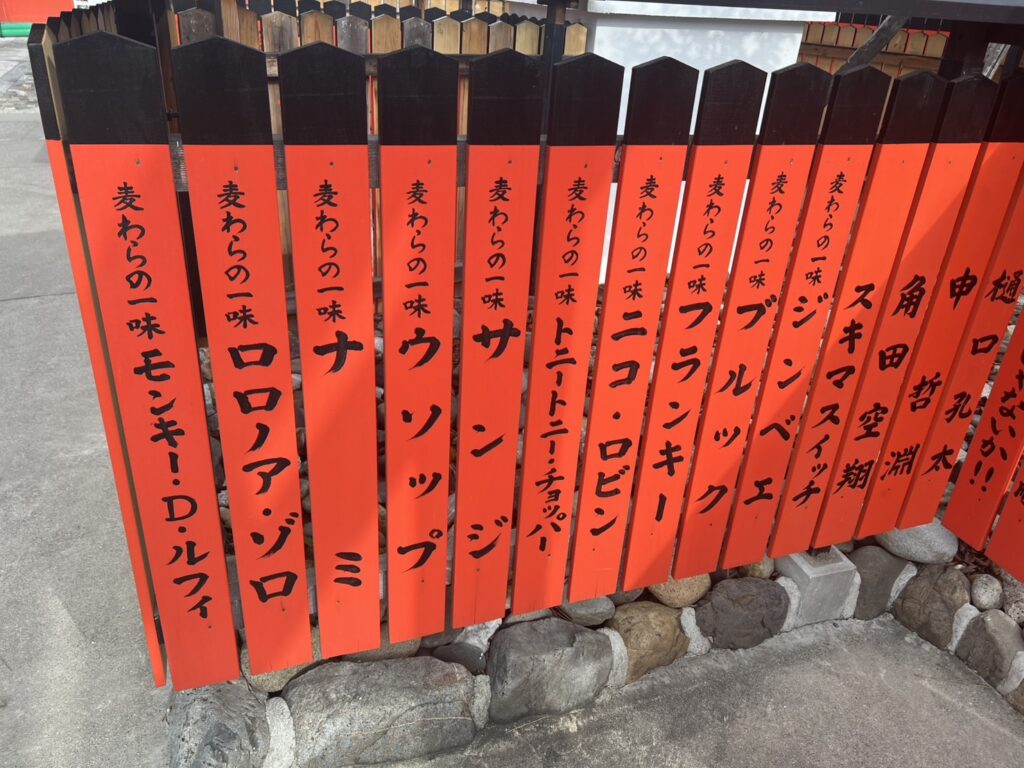 麦わらの一味 モンキー・D・ルフィ
麦わらの一味 ロロノア・ゾロ
麦わらの一味 ナミ
麦わらの一味 ウソップ
麦わらの一味 サンジ
麦わらの一味 トニートニー・チョッパー
麦わらの一味 ニコ・ロビン
麦わらの一味 フランキー
麦わらの一味 ブルック
麦わらの一味 ジンベエ
スキマスイッチ
角田空翔
申哲淵
樋口孔太
ないか!!